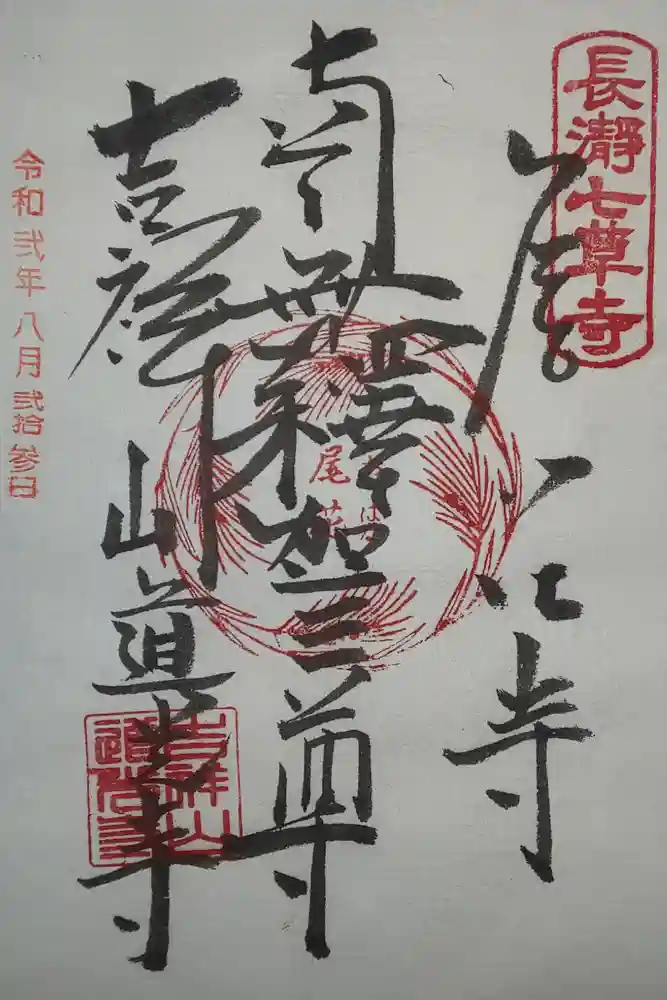 長瀞七草寺
尾花寺
南無釋迦三尊
尾花
吉祥山道光寺
吉祥山
道光寺
令和弐年八月弐拾参日